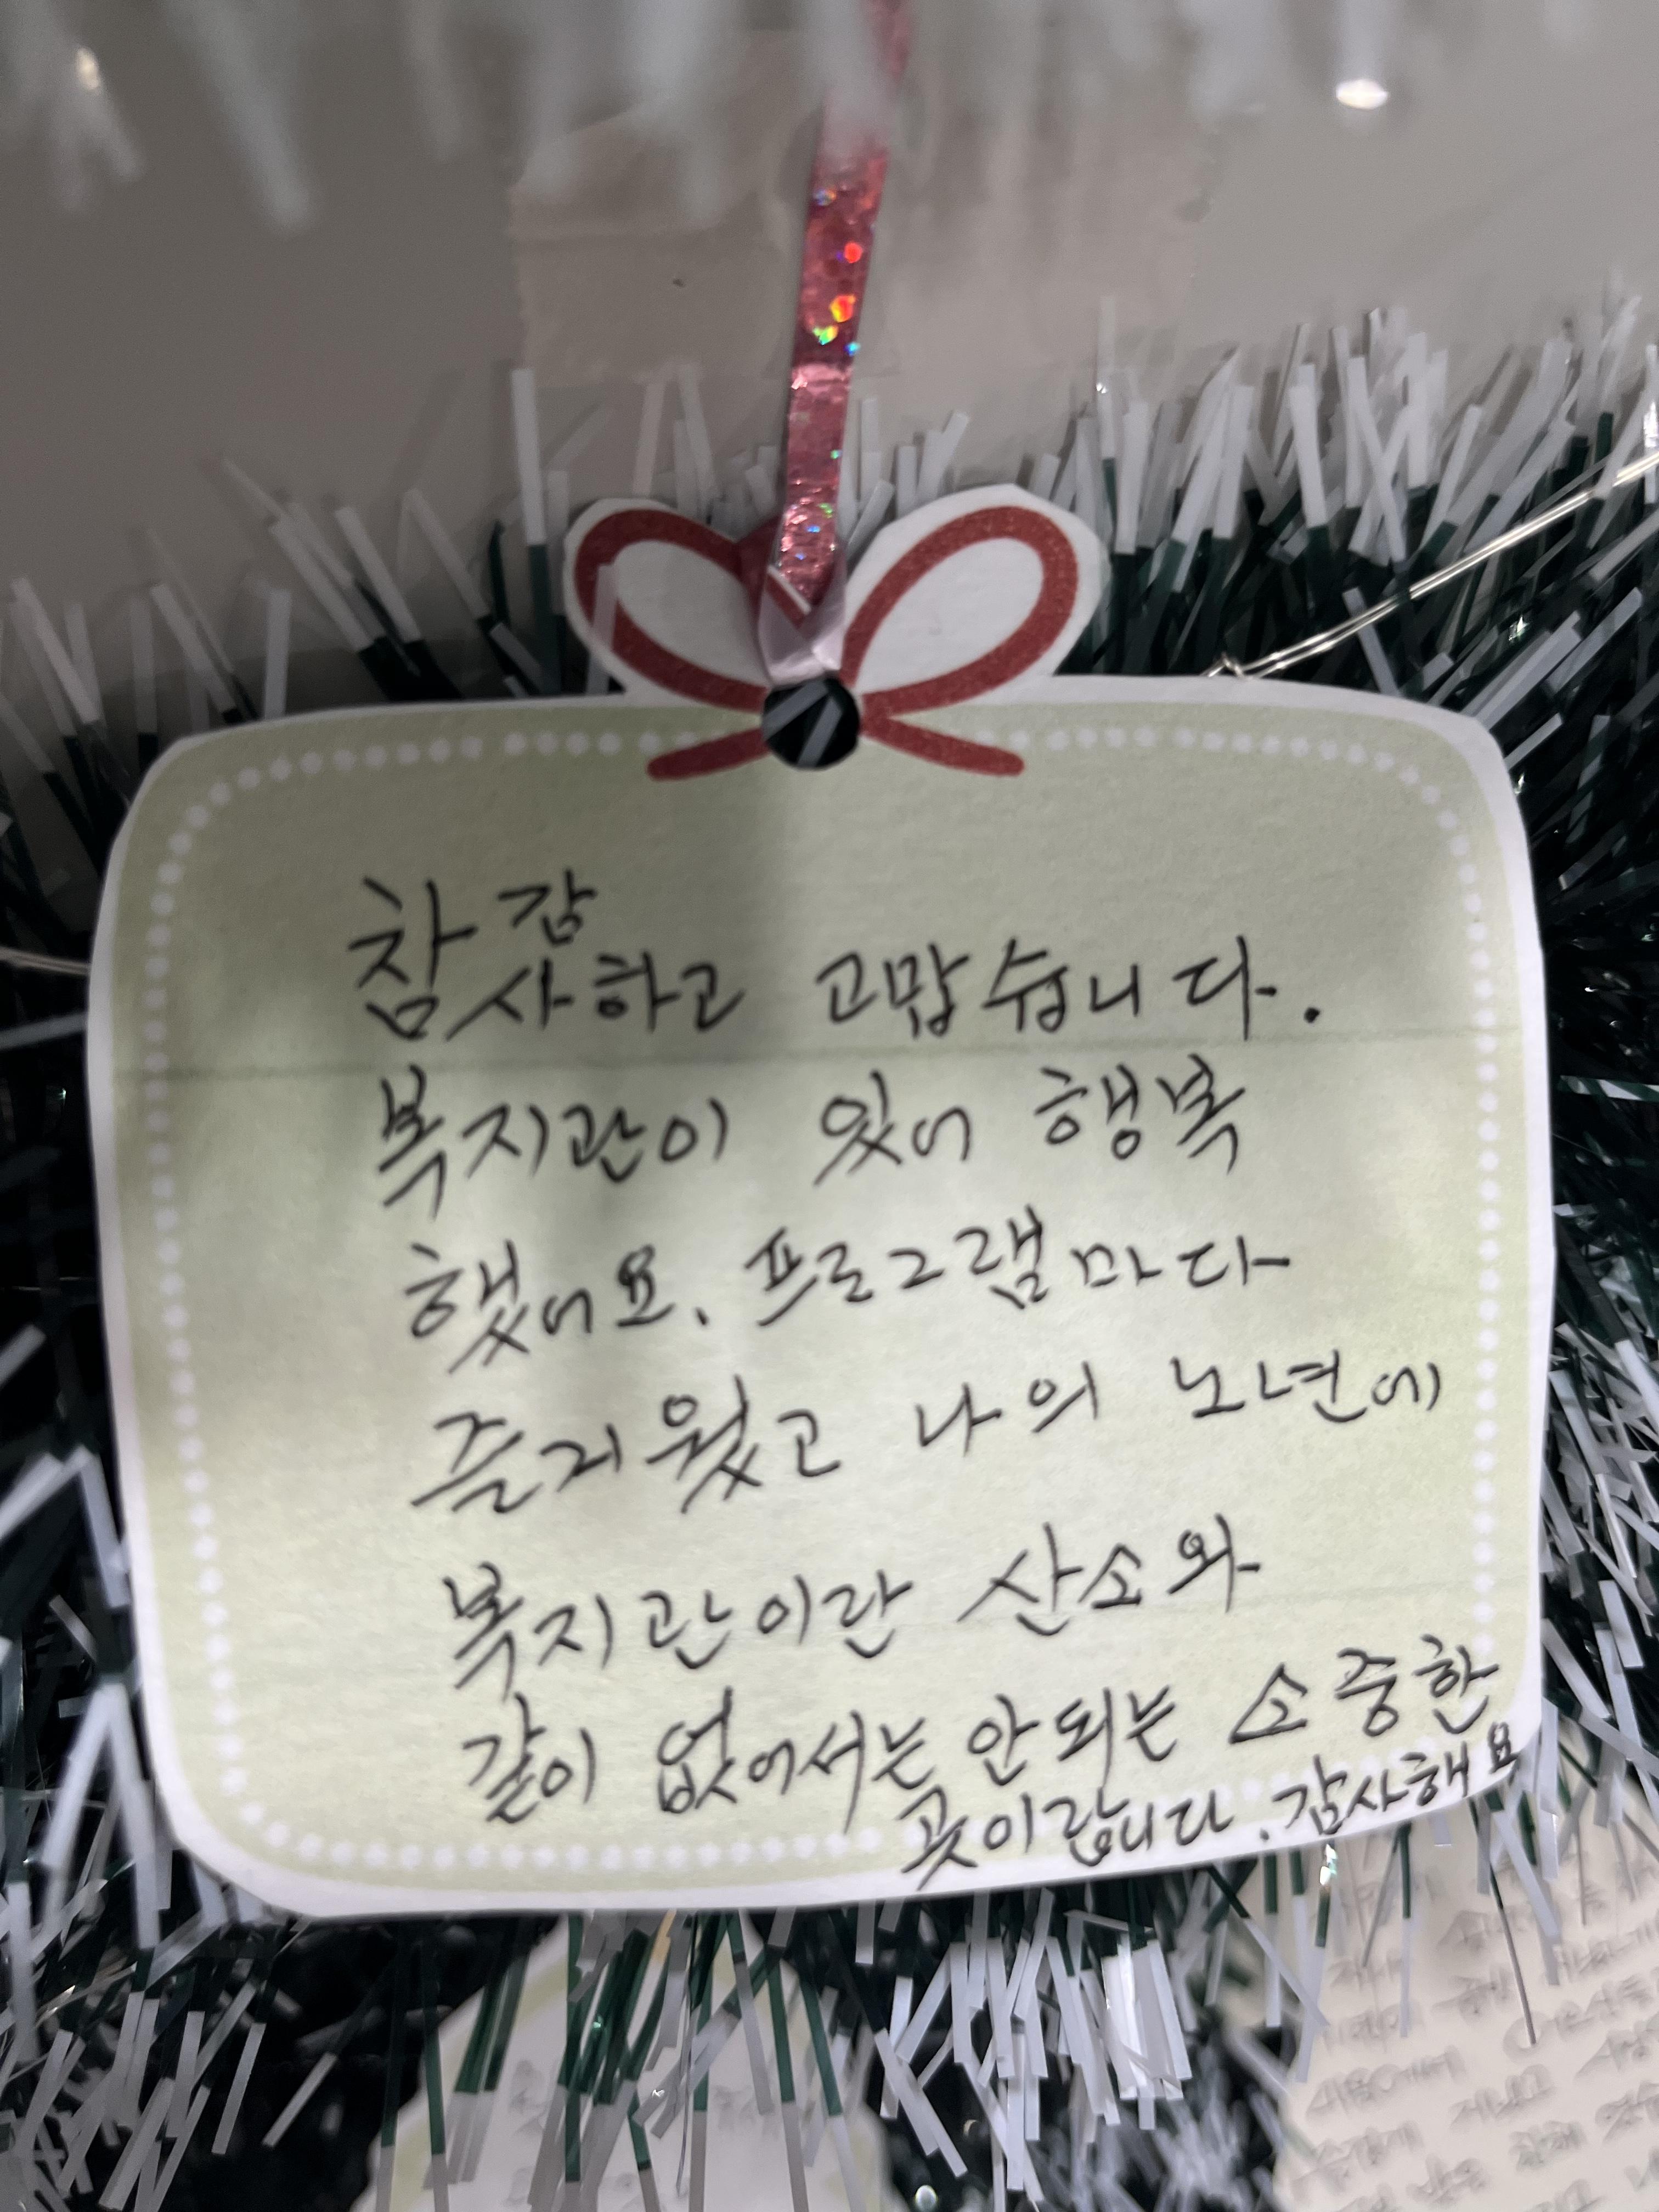 참 감사하고 고맙습니다.
복지관이 있어 행복
했어요. 프로그램마다
즐거웠고 나의 노년에
복지관이란 산소와
같이 없어서는 안되는 소중한
곳이랍니다. 감사해요